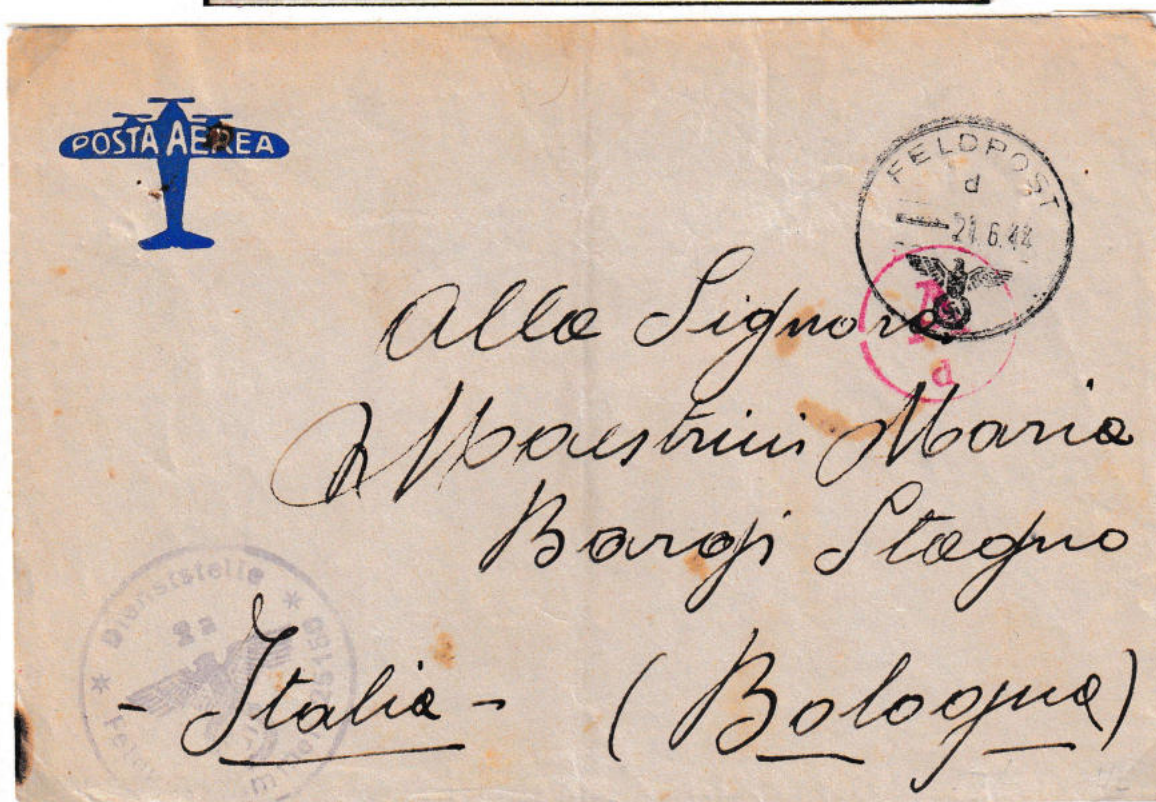 POSTA AEREA
FELDPOST
d
21.6.44
A
d
Alla Signora
Maestrini Maria
Bargi Stagno
- Italia - (Bologna)
Dienststelle